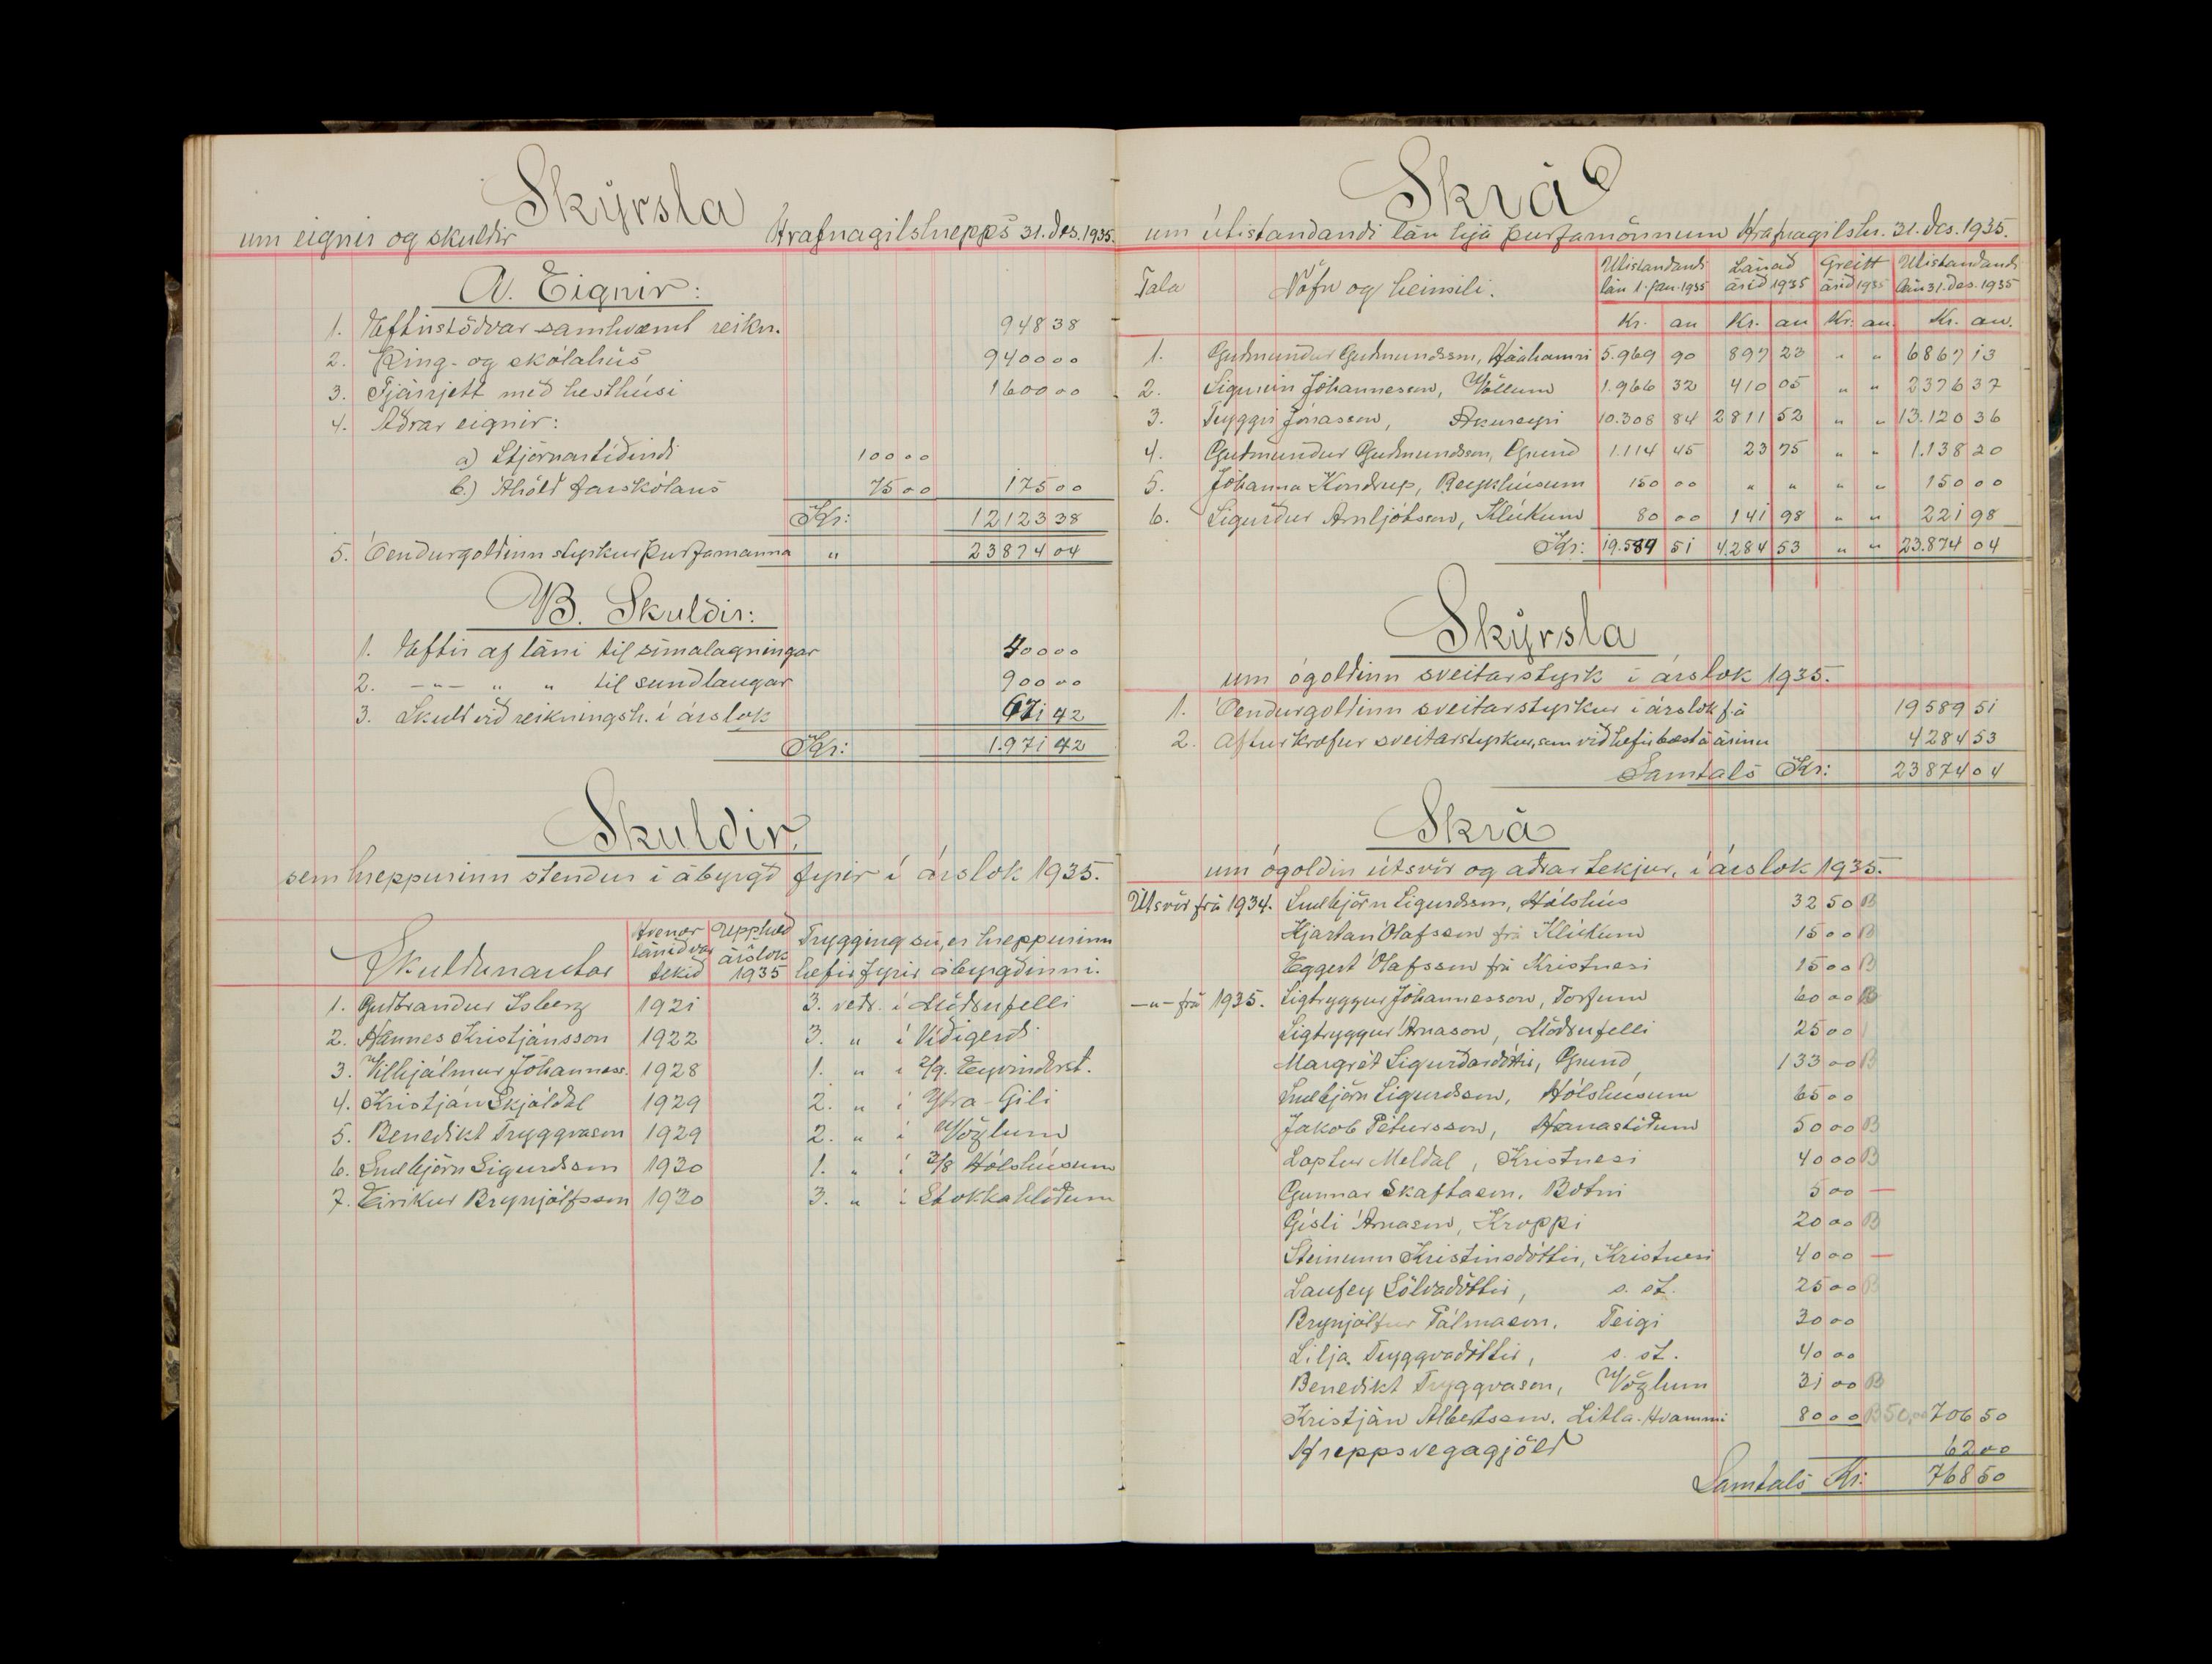 Skýrsla
um eignir og skuldir Hrafnagilshrepps 31. des. 1935.
A. Eignir:
1. Eftirstöðvar samkvæmt reikn. 948 38
2. Þing- og skólahús 9400 00
3. Fjárrjett með hesthúsi 1600 00
4. Aðrar eignir:
a) Stjórnartíðindi 100 00
b.) Áhöld farskólans 75 00 175 00
Kr: 12123 38
5. Óendurgoldinn styrkur þurfamanna " 23874 04
B. Skuldir:
1. Eftir af láni til símalagningar 400 00
2. -"- " " til sundlaugar 900 00
3. Skuld við reikningsh. í árslok 671 42
Kr: 1.971 42
Skuldir,
sem hreppurinn stendur í ábyrgð fyrir í árslok 1935.
Skuldunautar
Hvenær lánið var tekið
Upphæð árslok 1935
Trygging sú, er hreppurinn hefir fyrir ábyrgðinni.
1. Guðbrandur Ísberg 1921 3. veðr. í Möðrufelli
2. Hannes Kristjánsson 1922 3. " í Víðigerði
3. Vilhjálmur Jóhanness. 1928 1. " í 2/9. Eyvindarst.
4. Kristján Skjáldal 1929 2. " í Ytra-Gili
5. Benedikt Tryggvason 1929 2. " í Vöglum
6. Snæbjörn Sigurðsson 1930 1. " í 3/8 Hólshúsum
7. Eiríkur Brynjólfsson 1930 3. " í Stokkahlöðum
Skrá
um útistandandi lán hjá þurfamönnum Hrafnagilshr. 31. des. 1935.
Tala
Nöfn og heimili.
Útistandandi lán 1. jan. 1935
Lánað árið 1935
Greitt árið 1935
Útistandandi lán 31. des. 1935
Kr. au Kr. au Kr. au. Kr. au.
1. Guðmundur Guðmundssn, Hááhamri 5.969 90 897 23 " " 6867 13
2. Sigurvin Jóhannesson, Völlum 1.966 32 410 05 " " 2376 37
3. Tryggvi Jónasson, Akureyri 10.308 84 2811 52 " " 13.120 36
4. Guðmundur Guðmundsson, Grund 1.114 45 23 75 " " 1.138 20
5. Jóhanna Kondrup, Reykhúsum 150 00 " " " " 150 00
6. Sigurður Arnljótsson, Klúkum 80 00 141 98 " " 221 98
Kr: 19.589 51 4.284 53 " " 23.874 04
Skýrsla
um ógoldinn sveitarstyrk í árslok 1935.
1. Óendurgoldinn sveitarstyrkur í árslok f.á 19589 51
2. Afturkræfur sveitarstyrkur, sem við hefir bæst á árinu 4284 53
Samtals Kr: 23874 04
Skrá
um ógoldin útsvör og aðrar tekjur, í árslok 1935.
Útsvör frá 1934. Snæbjörn Sigurðsson, Hólshús 32 50 B
Kjartan Ólafsson frá Klúkum 15 00 B
Eggert Ólafsson frá Kristnesi 15 00 B
-"- frá 1935. Sigtryggur Jóhannesson, Torfum 60 00 B
Sigtryggur Árnason, Möðrufelli 25 00
Margrét Sigurðardóttir, Grund, 133 00 B
Snæbjörn Sigurðsson, Hólshúsum 65 00
Jakob Pétursson, Hranastöðum 50 00 B
Loptur Meldal, Kristnesi 40 00 B
Gunnar Skaftason, Botni 5 00 —
Gísli Árnason, Kroppi 20 00 B
Steinunn Kristinsdóttir, Kristnesi 40 00 —
Laufey Sölvadóttir, s. st. 25 00 B
Brynjólfur Pálmason, Teigi 30 00
Lilja Tryggvadóttir, s. st. 40 00
Benedikt Tryggvason, Vöglum 31 00 B
Kristján Albertsson. Litla-Hvammi 80 00 B 50,00 706 50
Hreppsvegagjöld 62 00
Samtals Kr: 768 50